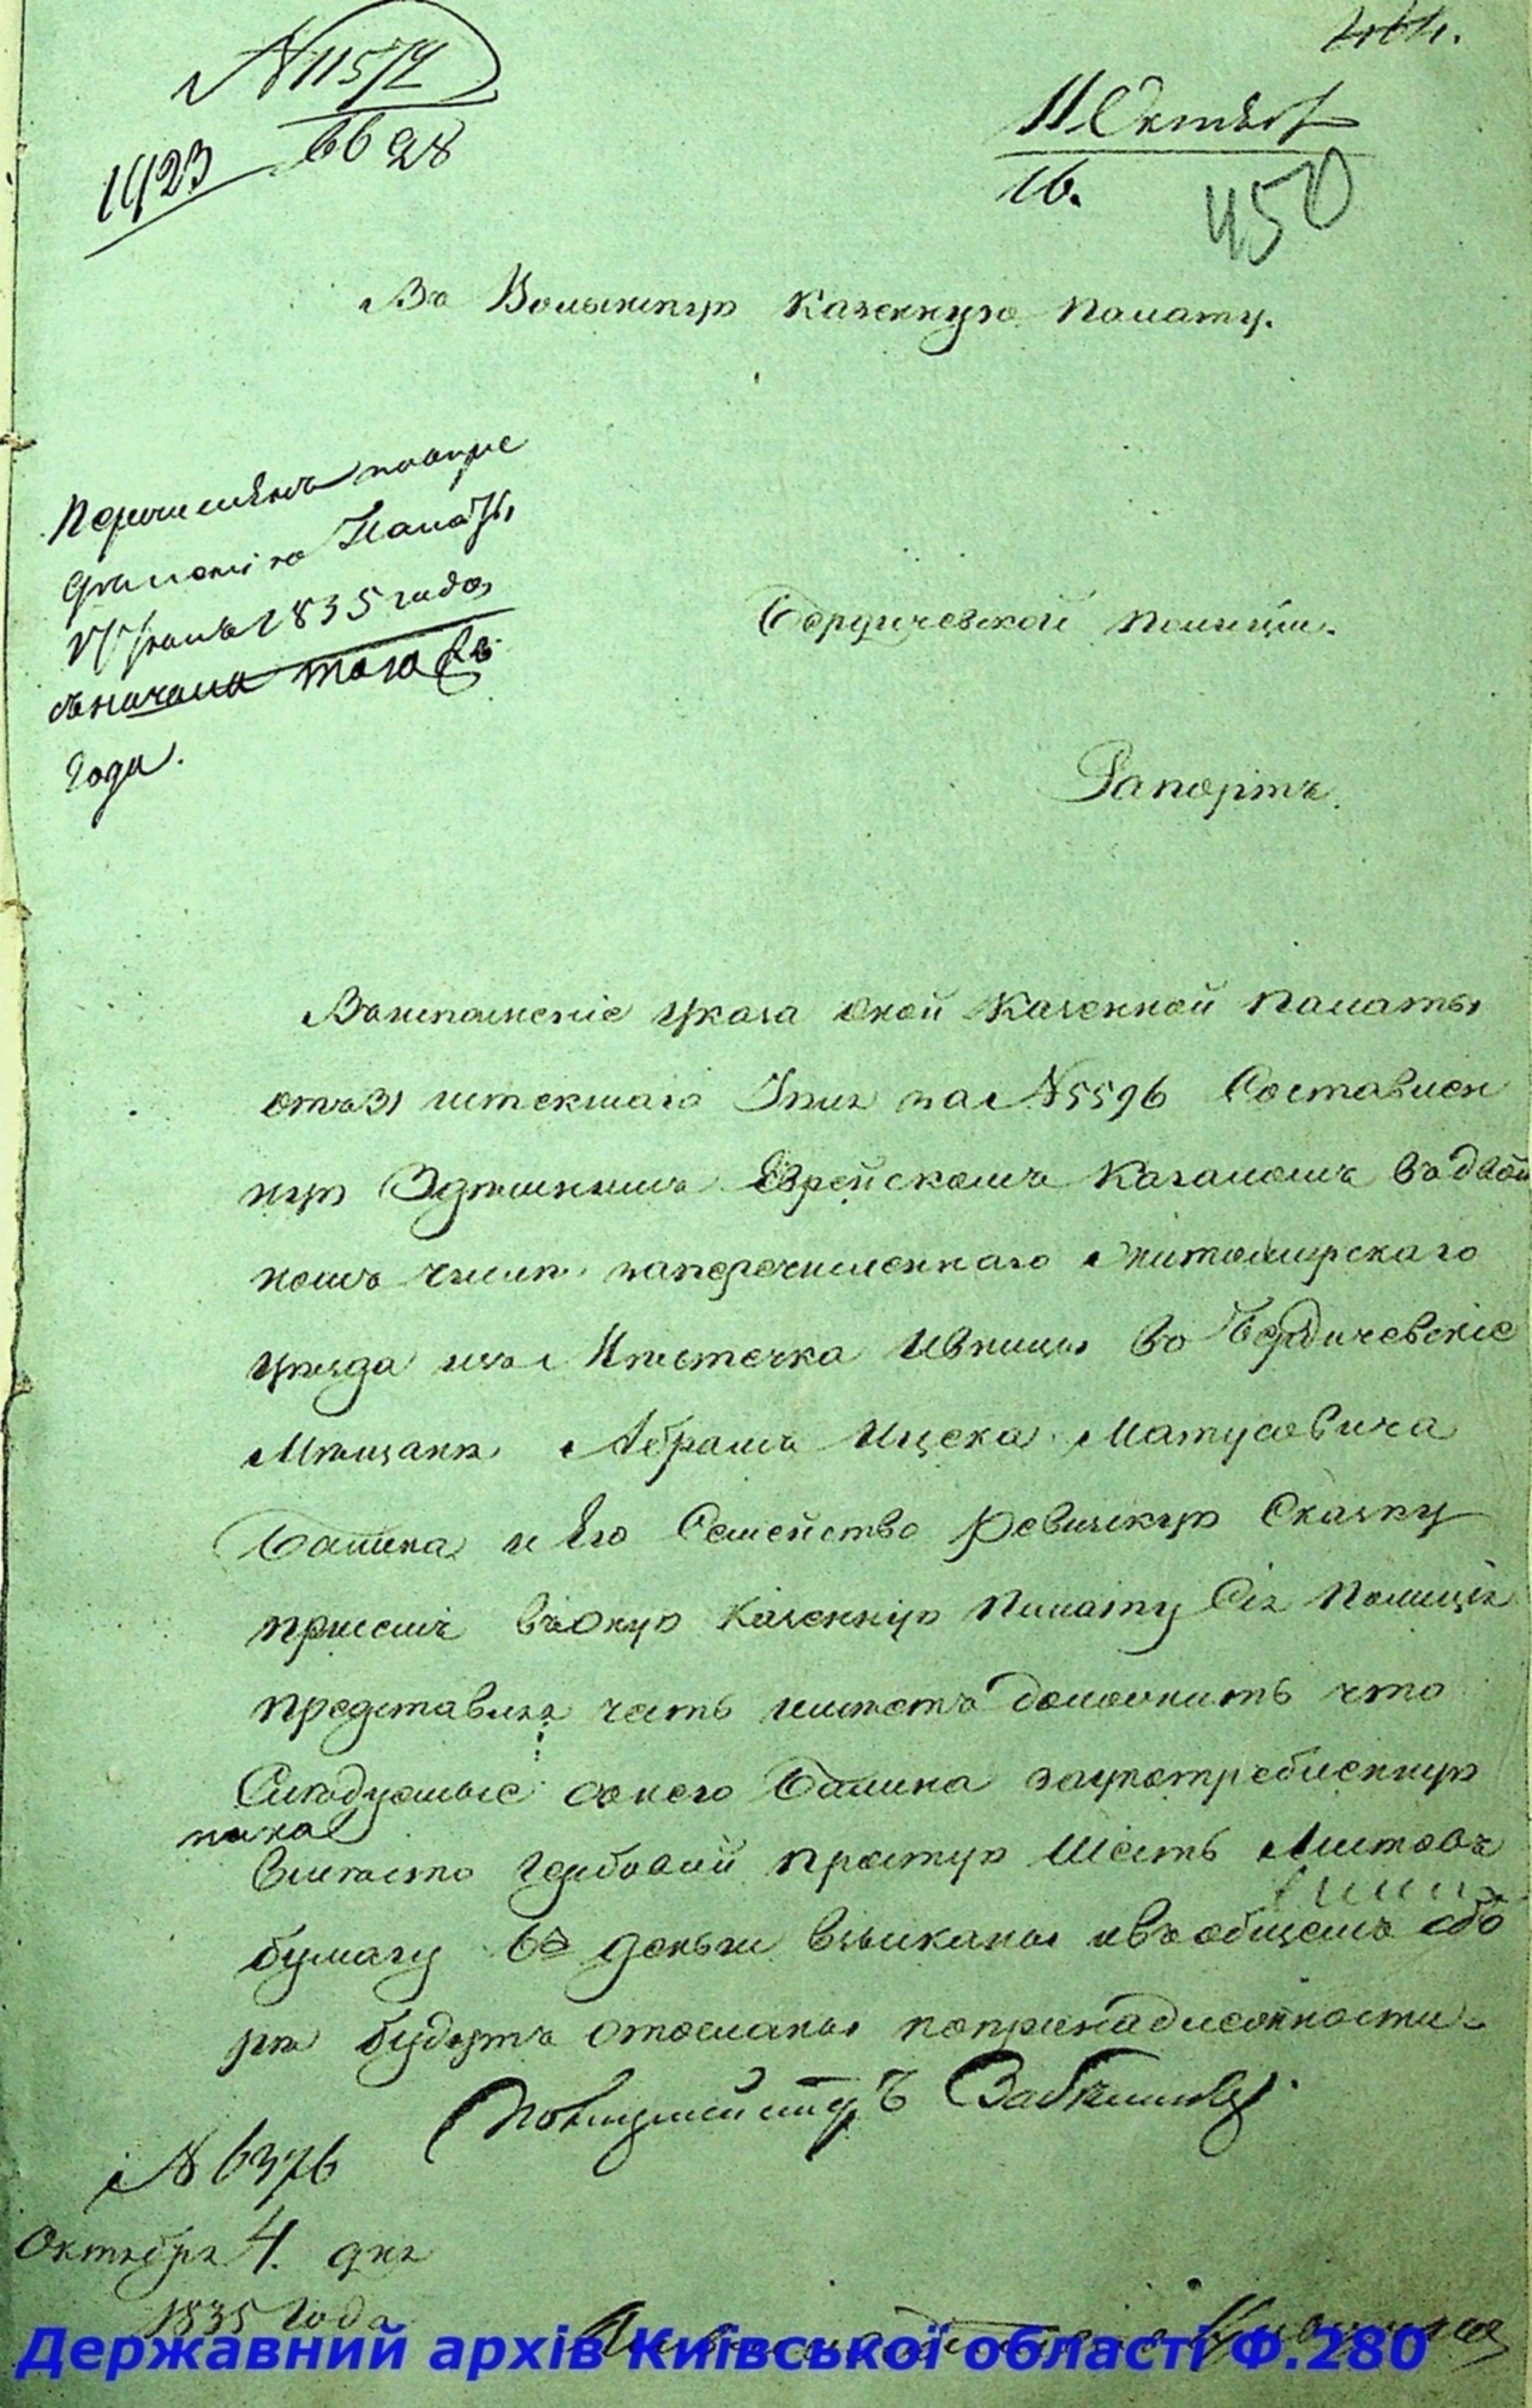 № 11572
6628
1423
11. Октября
16.
450
Въ Волынскую Казенную Палату.
Перечисленъ по опре
дѣленію Палаты
1835 года
съ начала того же
года.
Бердичевской Полиціи.
Рапортъ.
Во исполненіе Указа оной Казенной Палаты
отъ 31 истекшаго Іюля за № 5596 Составлен
ную Здѣшнимъ Еврейскомъ Кагаломъ въ двой
номъ числѣ на перечисленнаго Житомирскаго
уѣзда изъ Мѣстечка Ивницы во Бердичевскіе
Мѣщане Абрамъ Ицека Матусовича
Балина и Его Семейство Ревизскую Сказку
при семъ въ оную Казенную Палату Сія Полиція
представляя честь имѣетъ доложить что
Слѣдуемые съ него Балина за употребленную
вмѣсто гербовой простую Шесть Листовъ
бумагу деньги взысканы и въ общемъ сбо
рѣ будутъ отосланы по принадлежности.
Полицмейстеръ
№ 6376
Октября 4. дня
1835 года
Державний архів Київської області Ф.280